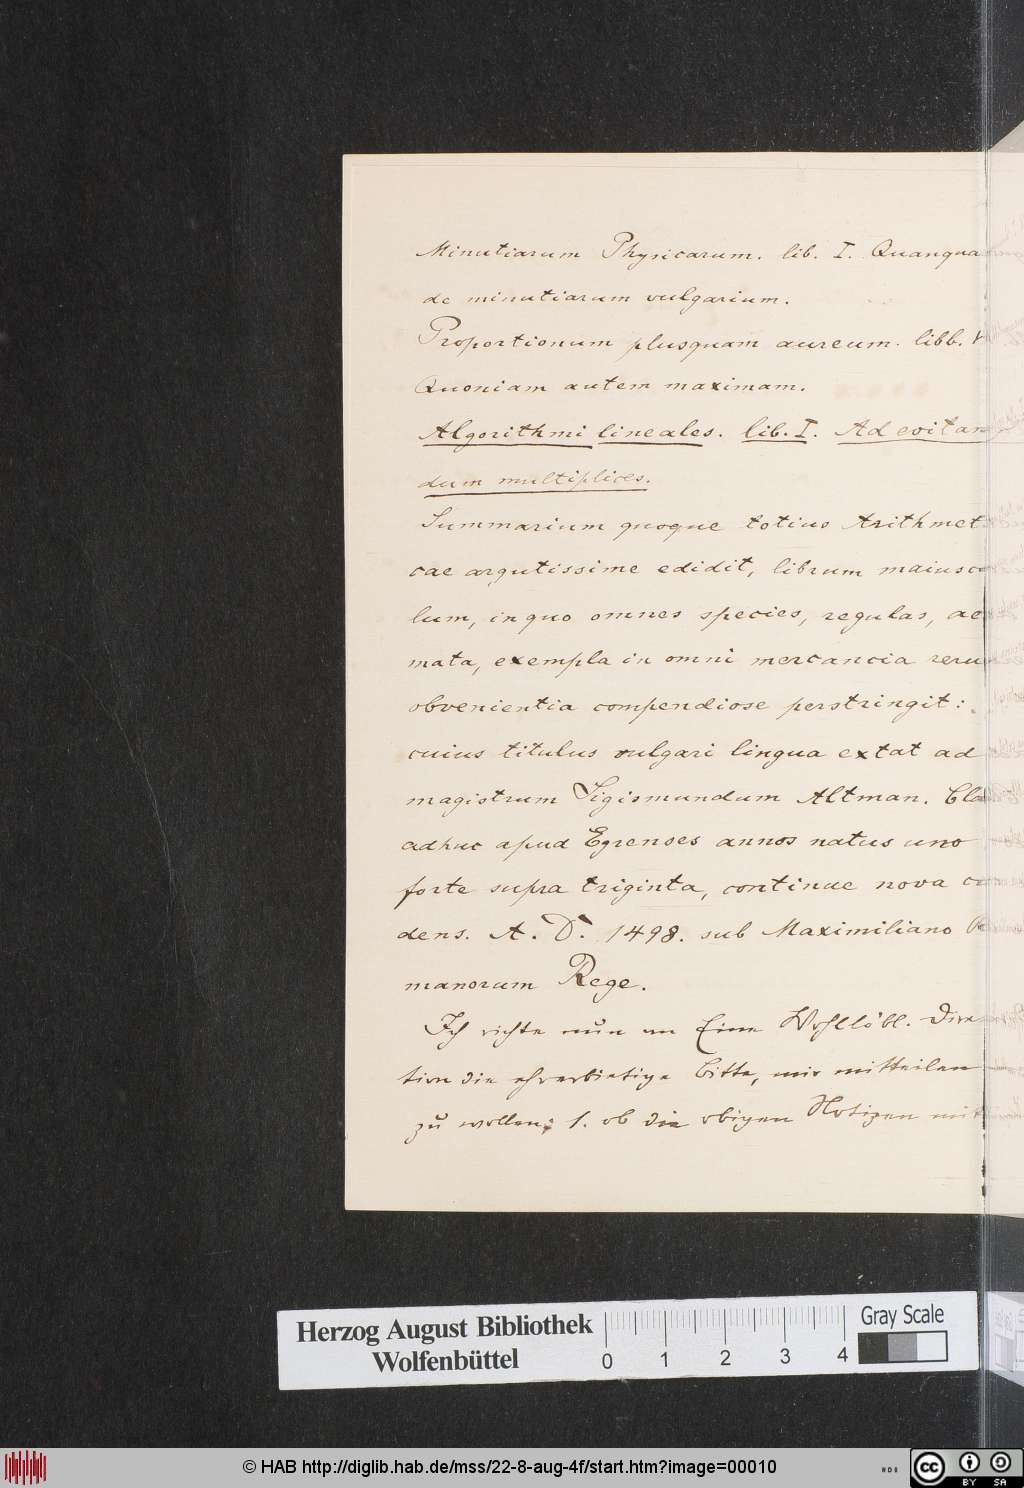 Minutiarum Physicarum. lib. I. Quanqua
de minutiarum vulgarium.
Proportionum plusquam aureum. libb. V
Quoniam autem maximam.
Algorithmi lineales. lib. I. Ad evitan
dum multiplices.
Summarium quoque totius Arithmet
cae argutissime edidit, librum maiuscu
lum, in quo omnes species, regulas, ae
mata, exempla in omni mercancia reru
obvenientia compendiose perstringit:
cuius titulus vulgari lingua extat ad
magistrum Sigismundum Altman. Cla
adhuc apud Egrenses annos natus uno
forte supra triginta, continue nova cu
dens. A. D. 1498. sub Maximiliano Ro
manorum Rege.
Ich richte nun an Eine Wohllöbl. Direk
tion die ehrerbietige Bitte, mir mitteilen
zu wollen: 1. ob die obigen Notizen mit
Herzog August Bibliothek
Wolfenbüttel
0 1 2 3 4
Gray Scale
© HAB http://diglib.hab.de/mss/22-8-aug-4f/start.htm?image=00010
cc BY SA